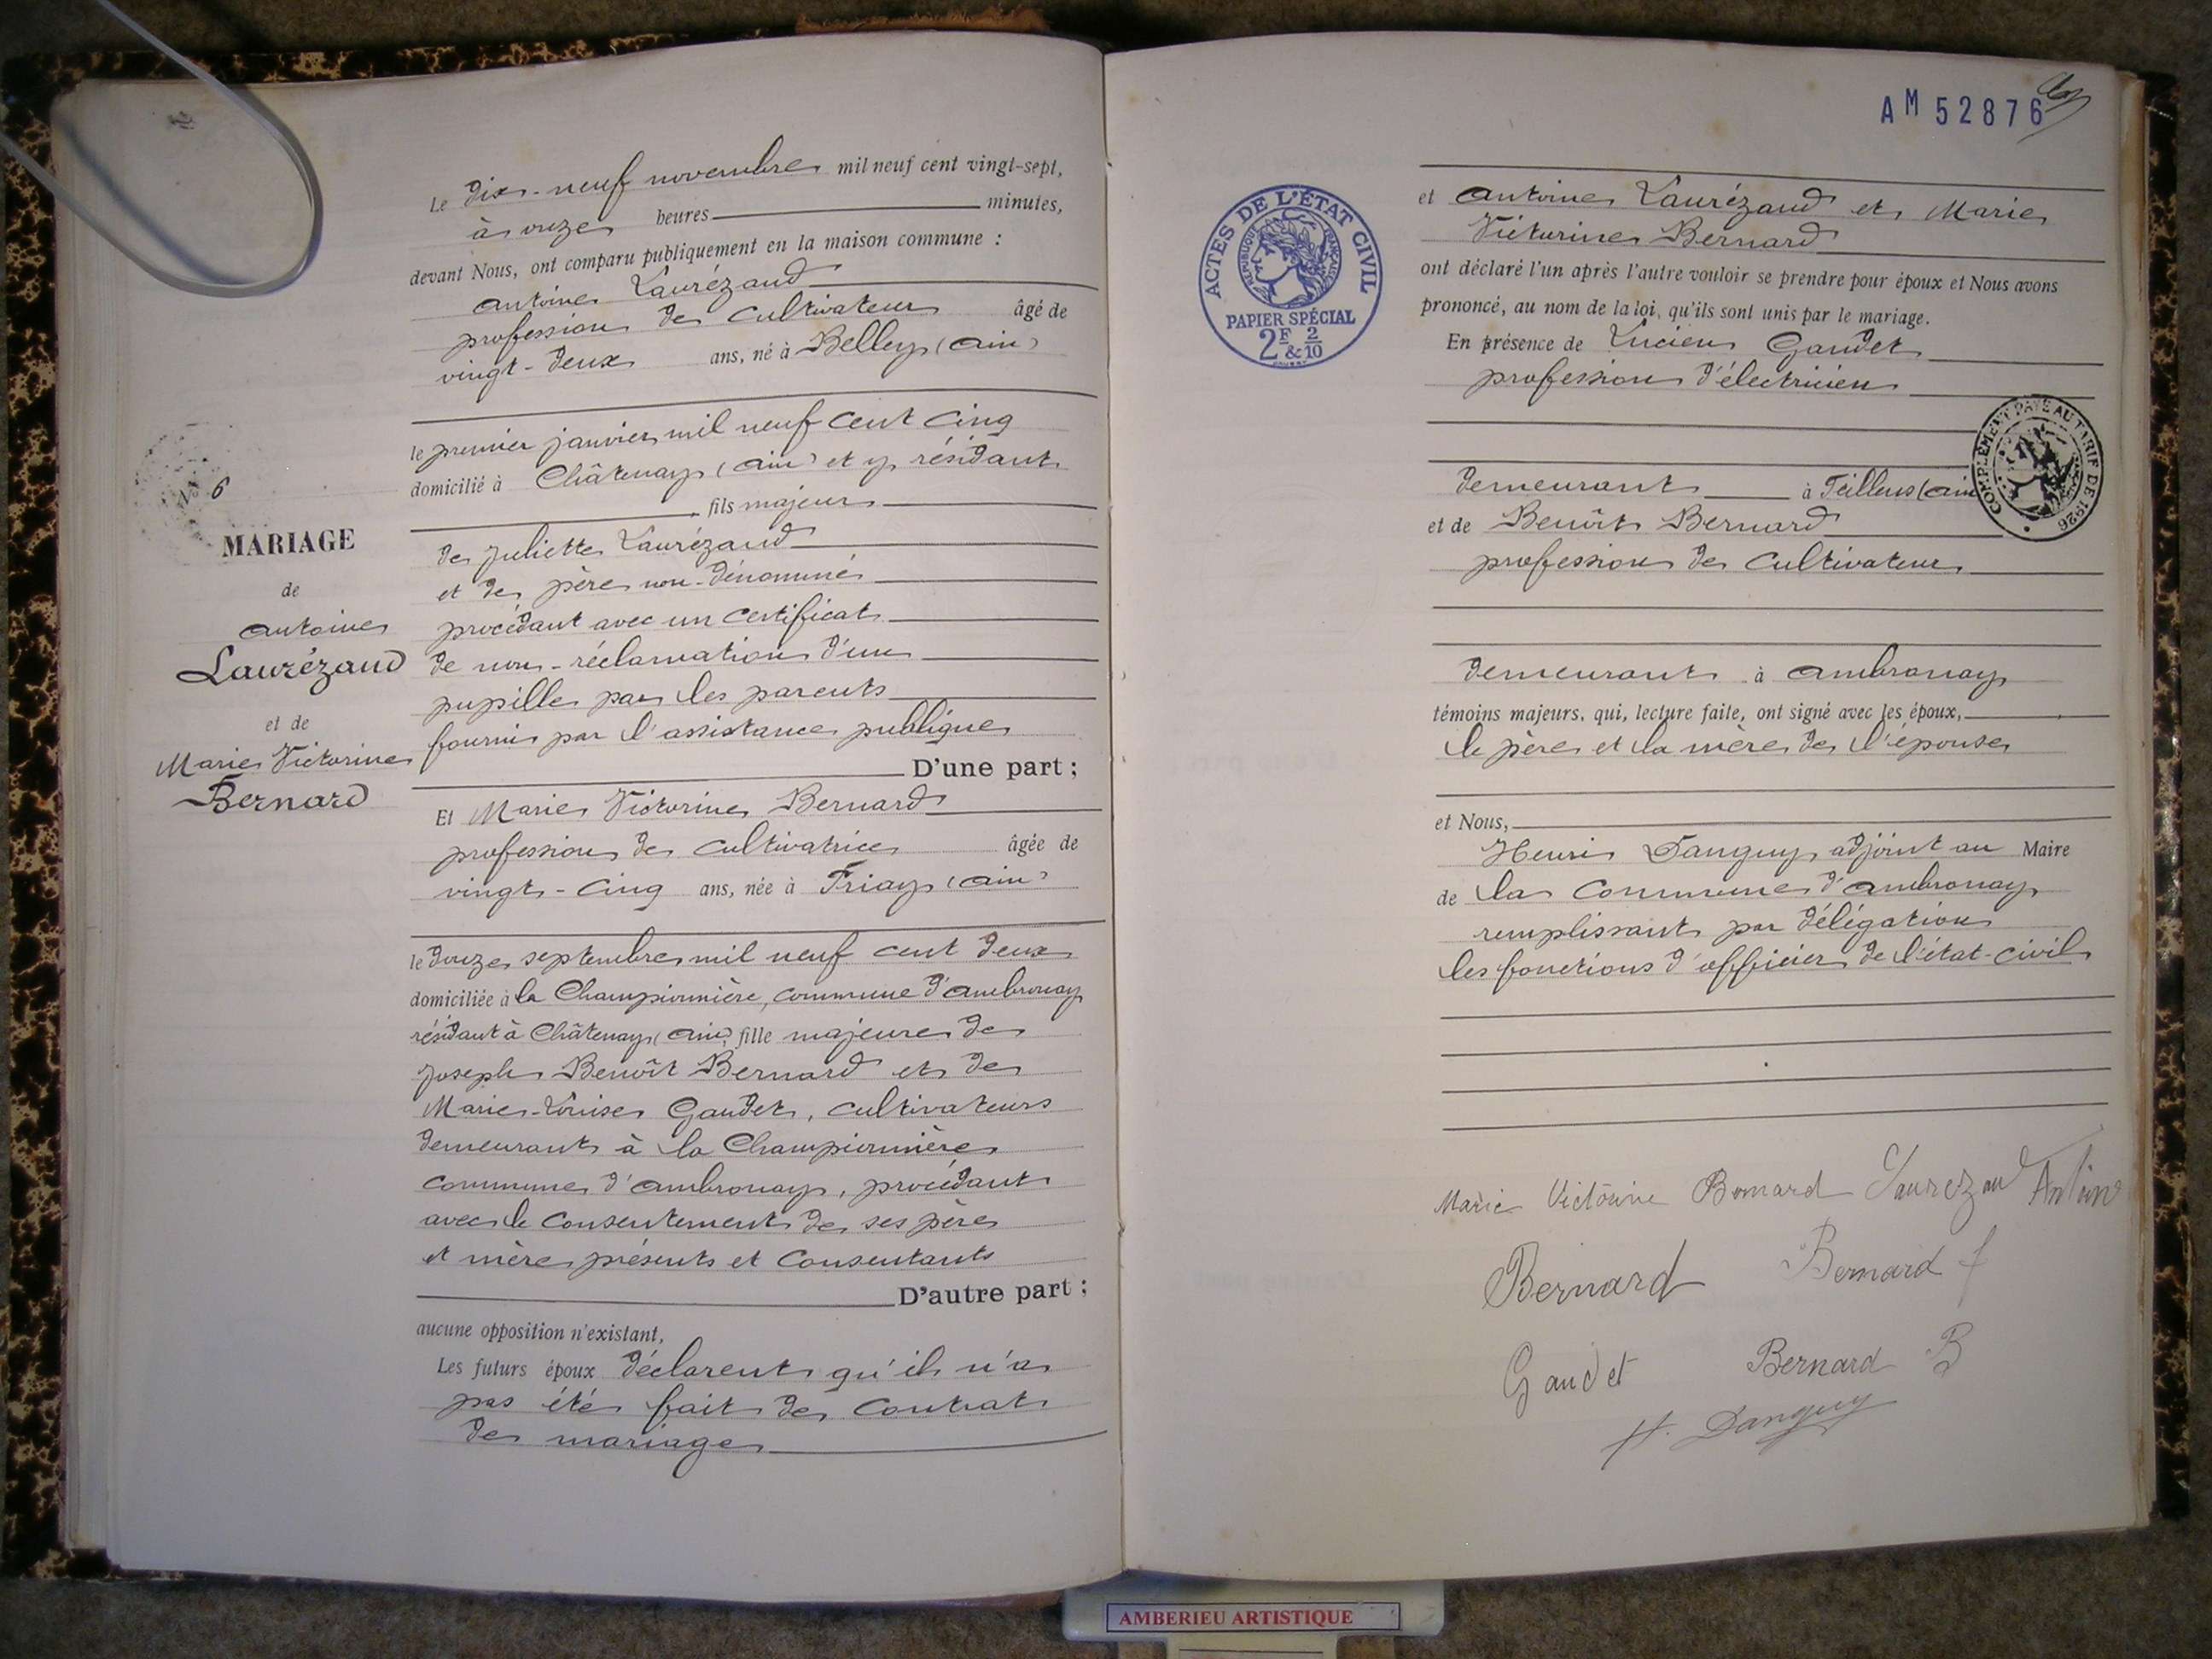 N° 6
MARIAGE
de
Antoine
Laurézaud
et de
Marie Victorine
Bernard
Le dix-neuf novembre mil neuf cent vingt-sept,
à onze heures minutes,
devant Nous, ont comparu publiquement en la maison commune :
Antoine Laurézaud
profession de cultivateur âgé de
vingt-deux ans, né à Belley (Ain)
le premier janvier mil neuf cent cinq
domicilié à Châtenay (Ain) et y résidant
fils majeur
de Juliette Laurézaud
et de père non-dénommé
procédant avec un certificat
de non-réclamation d'un
pupille par les parents
fourni par l'assistance publique
D'une part ;
Et Marie Victorine Bernard
profession de cultivatrice âgée de
vingt-cinq ans, née à Priay (Ain)
le douze septembre mil neuf cent deux
domiciliée à la Championnière, commune d'Ambronay
résidant à Châtenay (Ain) fille majeure de
Joseph Benoît Bernard et de
Marie-Louise Gaudet, cultivateurs
demeurant à la Championnière
commune d'Ambronay, procédant
avec le consentement de ses père
et mère présents et consentants
D'autre part ;
aucune opposition n'existant,
Les futurs époux déclarent qu'il n'a
pas été fait de contrat
de mariage
AM 52876
ACTES DE L'ÉTAT CIVIL
RÉPUBLIQUE FRANÇAISE
PAPIER SPÉCIAL
2F & 2/10
et Antoine Laurézaud et Marie
Victorine Bernard
ont déclaré l'un après l'autre vouloir se prendre pour époux et Nous avons
prononcé, au nom de la loi, qu'ils sont unis par le mariage.
En présence de Lucien Gaudet
profession d'électricien
COMPLÉMENT PAYÉ AU TARIF DE 1926
demeurant à (Ain
et de Benoît Bernard
profession de cultivateur
demeurant à Ambronay
témoins majeurs, qui, lecture faite, ont signé avec les époux,
le père et la mère de l'épouse
et Nous,
Henri Tanguy adjoint au Maire
de la Commune d'Ambronay
remplissant par délégation
les fonctions d'officier de l'état-civil
Marie Victorine Bernard Laurezaud Antoine
Bernard Bernard f
Gaudet Bernard B
H. Tanguy
AMBERIEU ARTISTIQUE